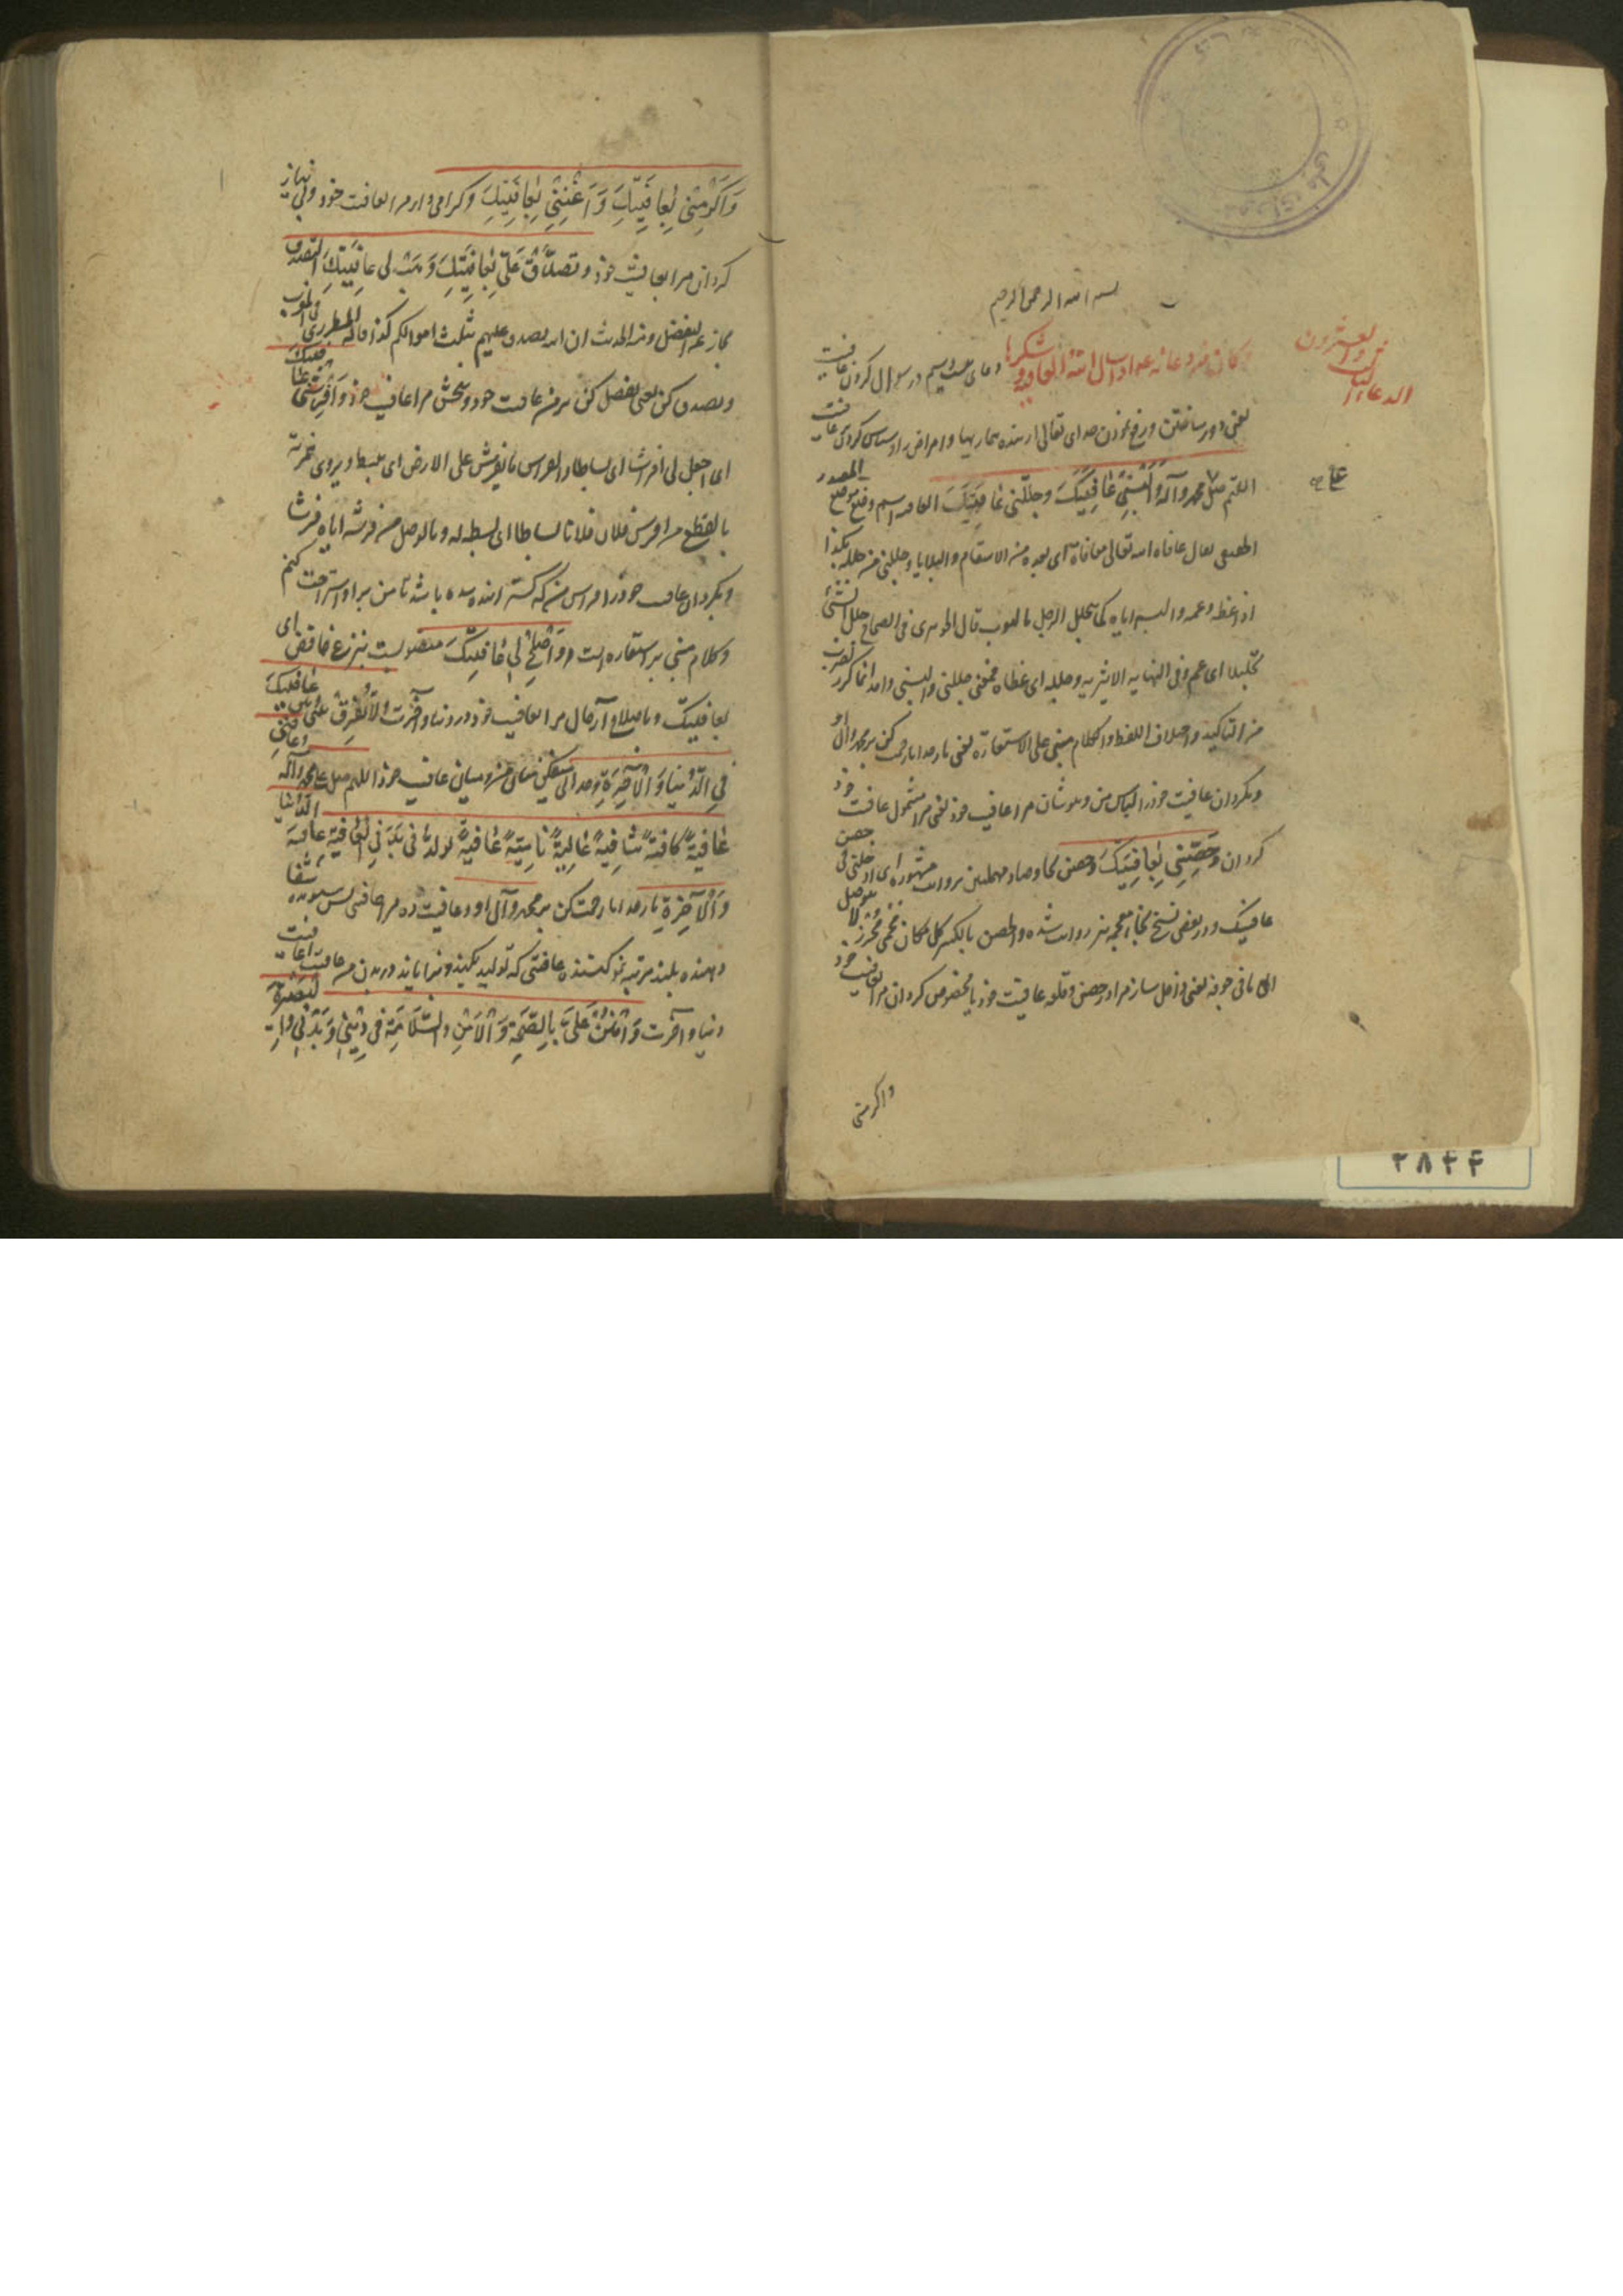 بسم الله الرحمن الرحیم
الدعاء الثالث والعشرون
وکان من دعائه ع اذا سال الله العافیة و شکرها دعای بیست و سیم در سوال کردن عافیت
یعنی دور ساختن و رفع نمودن خدای تعالی از بنده بیماریها و امراض را و سپاس کردن عافیت
اللهم صل علی محمد وآله وَاَلْبِسْنِی عَافِیَتَکَ وجَلِّلْنی عَافِیَتَکَ العافیه اسم وقع موقع المصدر
الحقیقی یقال عافاه الله تعالی معافاة ای بعده من الاسقام والبلایا وجللنی من جلله بکذا
اذا غطه وعمه والبسه ایاه کما یجلل الرجل بالثوب قال الجوهری فی الصحاح جلل الشئ
تجلیلا ای عم وفی النهایه الاثیریه وجلله ای غطاه فمعنی جللنی والبسنی واحد انما کرر لضرب
من التاکید واختلاف اللفظ والکلام مبنی علی الاستعارة یعنی بار خدایا رحمت کن بر محمد وآل او
وبگردان عافیت خود را لباس من وبپوشان مرا عافیت خود یعنی مرا مشمول عافیت خود
گردان وَحَصِّنِّی بِعَافِیَتِکَ وحصن بحا وصاد مهملتین بروایت مشهوره ای ادخلنی فی حصن
عافیتک ودر بعضی نسخ بخاء معجمه نیز روایت شده والحصن بالکسر کل مکان محمی محرز لا یوصل
الی ما فی جوفه یعنی داخل ساز مرا در حصن وقلعه عافیت خود یا مخصوص گردان مرا بعافیت خود
واکرمنی
وَاَکْرِمْنِی بِعَافِیَتِکَ وَاَغْنِنِی بِعَافِیَتِکَ وگرامی دار مرا بعافیت خود وبی نیاز
گردان مرا بعافیت خود وتَصَدَّقْ عَلَیَّ بِعَافِیَتِکَ وَهَبْ لی عَافِیَتَکَ التصدق
مجاز عن التفضل ومنه الحدیث ان الله تصدق علیهم بثلث اموالکم کذا قاله المطرزی فی المغرب
وتصدق کن یعنی تفضل کن بر من عافیت خود وببخش مرا عافیت خود وَاَفْرِشْنِی عَافِیَتَکَ
ای اجعل لی فراشا ای بساطا والفراش ما یفرش علی الارض ای یبسط ویروی همزته
بالقطع من افرش فلان فلانا بساطا ای بسطه له وبالوصل من فرشه ایاه فرشا
وبگردان عافیت خود را فراش من که گسترانیده شده باشد تا من بر او استراحت کنم
وکلام مبنی بر استعاره است وَاَصْلِحْ لِی عَافِیَتَکَ منصوبست بنزع خافض ای
بعافیتک وباصلاح آر حال مرا بعافیت خود در دنیا وآخرت وَلَا تُفَرِّقْ بَیْنِی وَبَیْنَ عَافِیَتِکَ
فِی الدُّنْیَا وَالْآخِرَةِ وجدائی میفکن میان من ومیان عافیت خود اللهم صل علی محمد وآله وعافنی
عَافِیَةً کَافِیَةً شَافِیَةً عَالِیَةً نَامِیَةً عَافِیَةً تُوَلِّدُ فی بَدَنِی الْعَافِیَةَ عَافِیَةَ الدُّنْیَا
وَالْآخِرَةِ بار خدایا رحمت کن بر محمد وآل او وعافیت ده مرا عافیتی بس نموده شفا
دهنده بلند مرتبه نمو کننده عافیتی که تولید بکند وبزایاند در بدن من عافیت را عافیت
دنیا وآخرت وَامْنُنْ عَلَیَّ بِالصِّحَّةِ وَالْاَمْنِ والسَّلَامَةِ فی دِینِی وَبَدَنِی والبَصِیرَةِ
۲۸۴۴